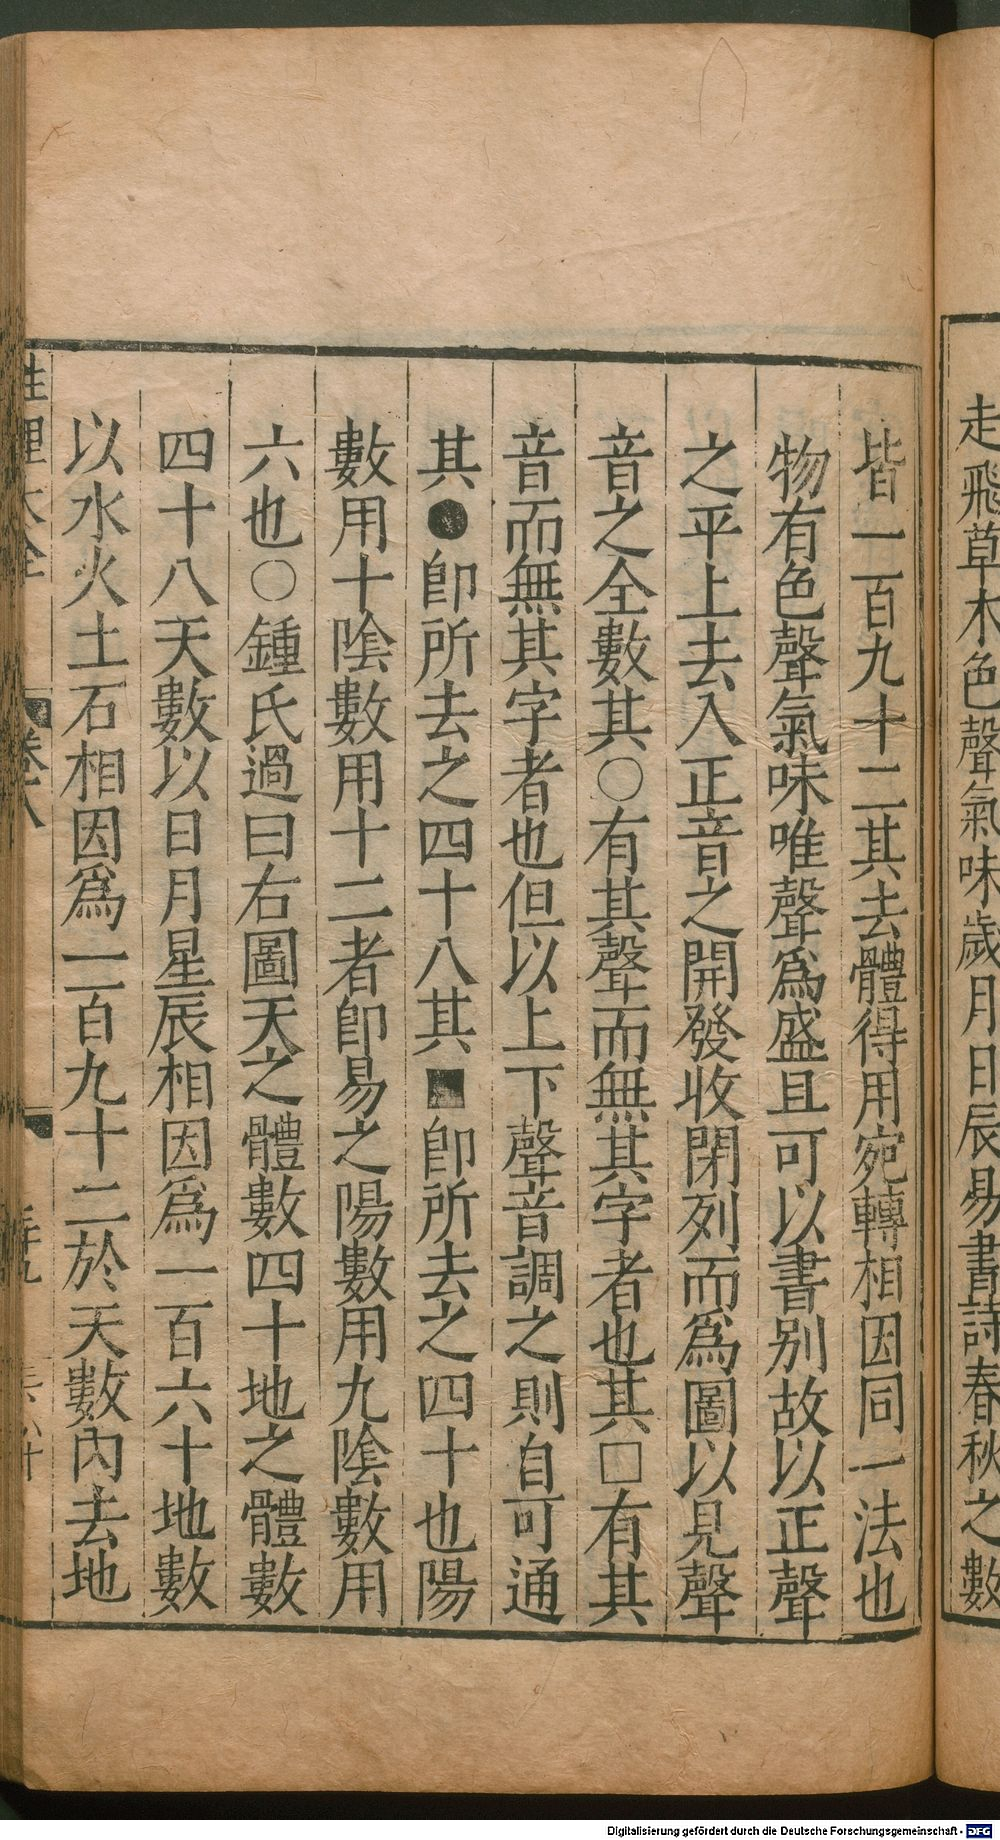 走飛草木色聲氣味歲月日辰易書詩春秋之數
皆一百九十二其去體得用宛轉相因同一法也
物有色聲氣味唯聲爲盛且可以書别故以正聲
之平上去入正音之開發收閉列而爲圖以見聲
音之全數其○有其聲而無其字者也其□有其
音而無其字者也但以上下聲音調之則自可通
其●卽所去之四十八其■卽所去之四十也陽
數用十陰數用十二者卽易之陽數用九陰數用
六也○鍾氏過曰右圖天之體數四十地之體數
四十八天數以日月星辰相因爲一百六十地數
以水火土石相因爲一百九十二於天數內去地
性理大全
卷八
Digitalisierung gefördert durch die Deutsche Forschungsgemeinschaft - DFG